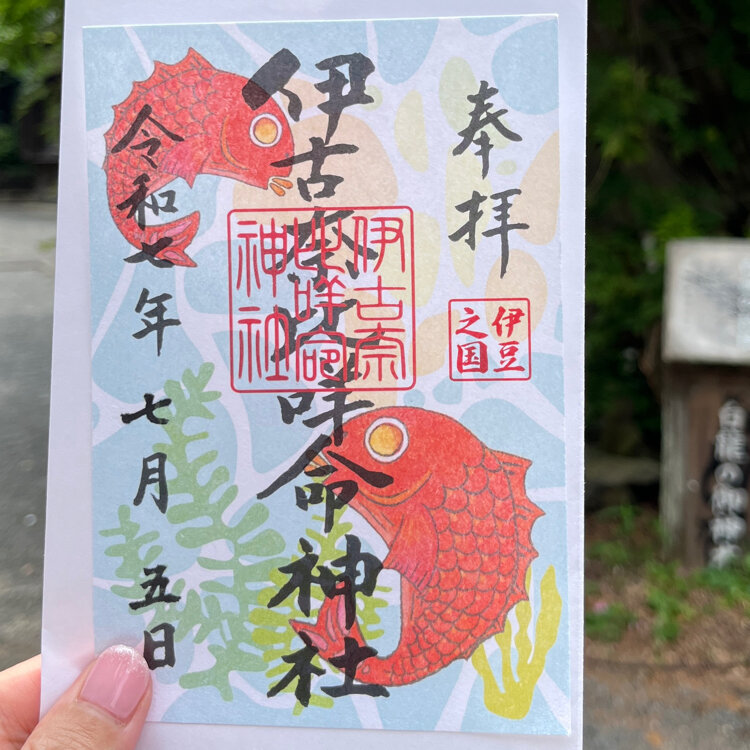 奉拝
伊豆
之国
伊古奈比咩命神社
伊古奈
比咩命
神社
令和七年七月五日
白龍の御神木